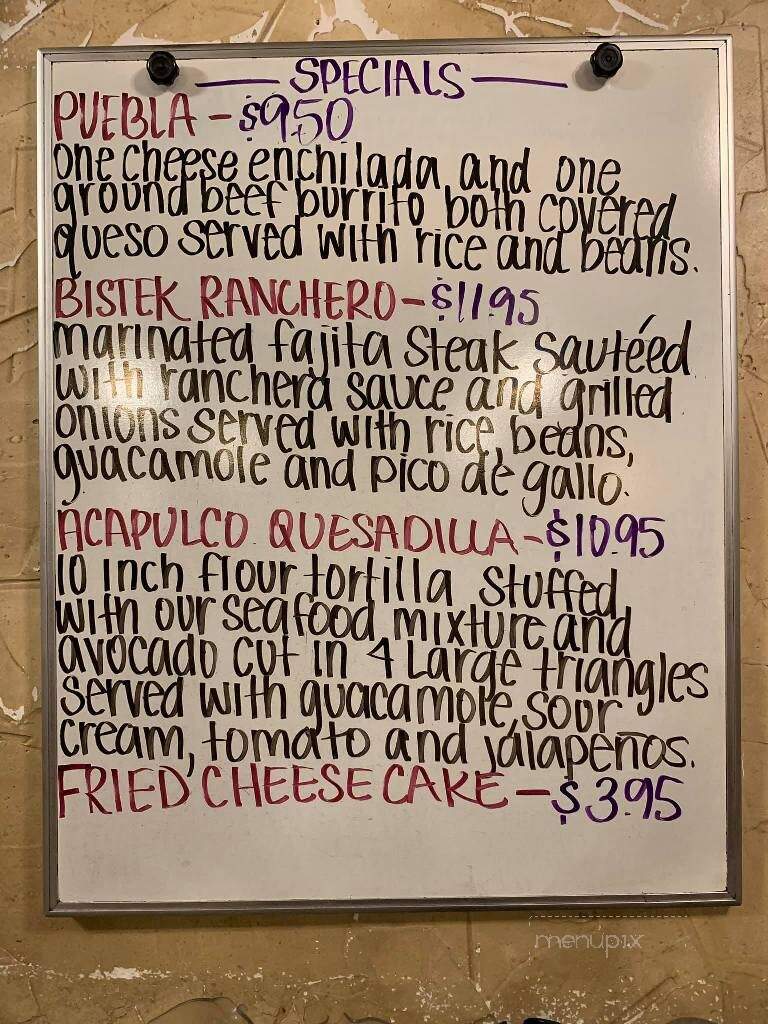 SPECIALS
PUEBLA - $9.50
one cheese enchilada and one
ground beef burrito both covered
queso served with rice and beans.
BISTEK RANCHERO - $11.95
marinated fajita steak sautéed
with ranchera sauce and grilled
onions served with rice, beans,
guacamole and pico de gallo.
ACAPULCO QUESADILLA - $10.95
10 inch flour tortilla stuffed
with our seafood mixture and
avocado cut in 4 Large triangles
served with guacamole, sour
cream, tomato and jalapeños.
FRIED CHEESE CAKE - $3.95
menupix